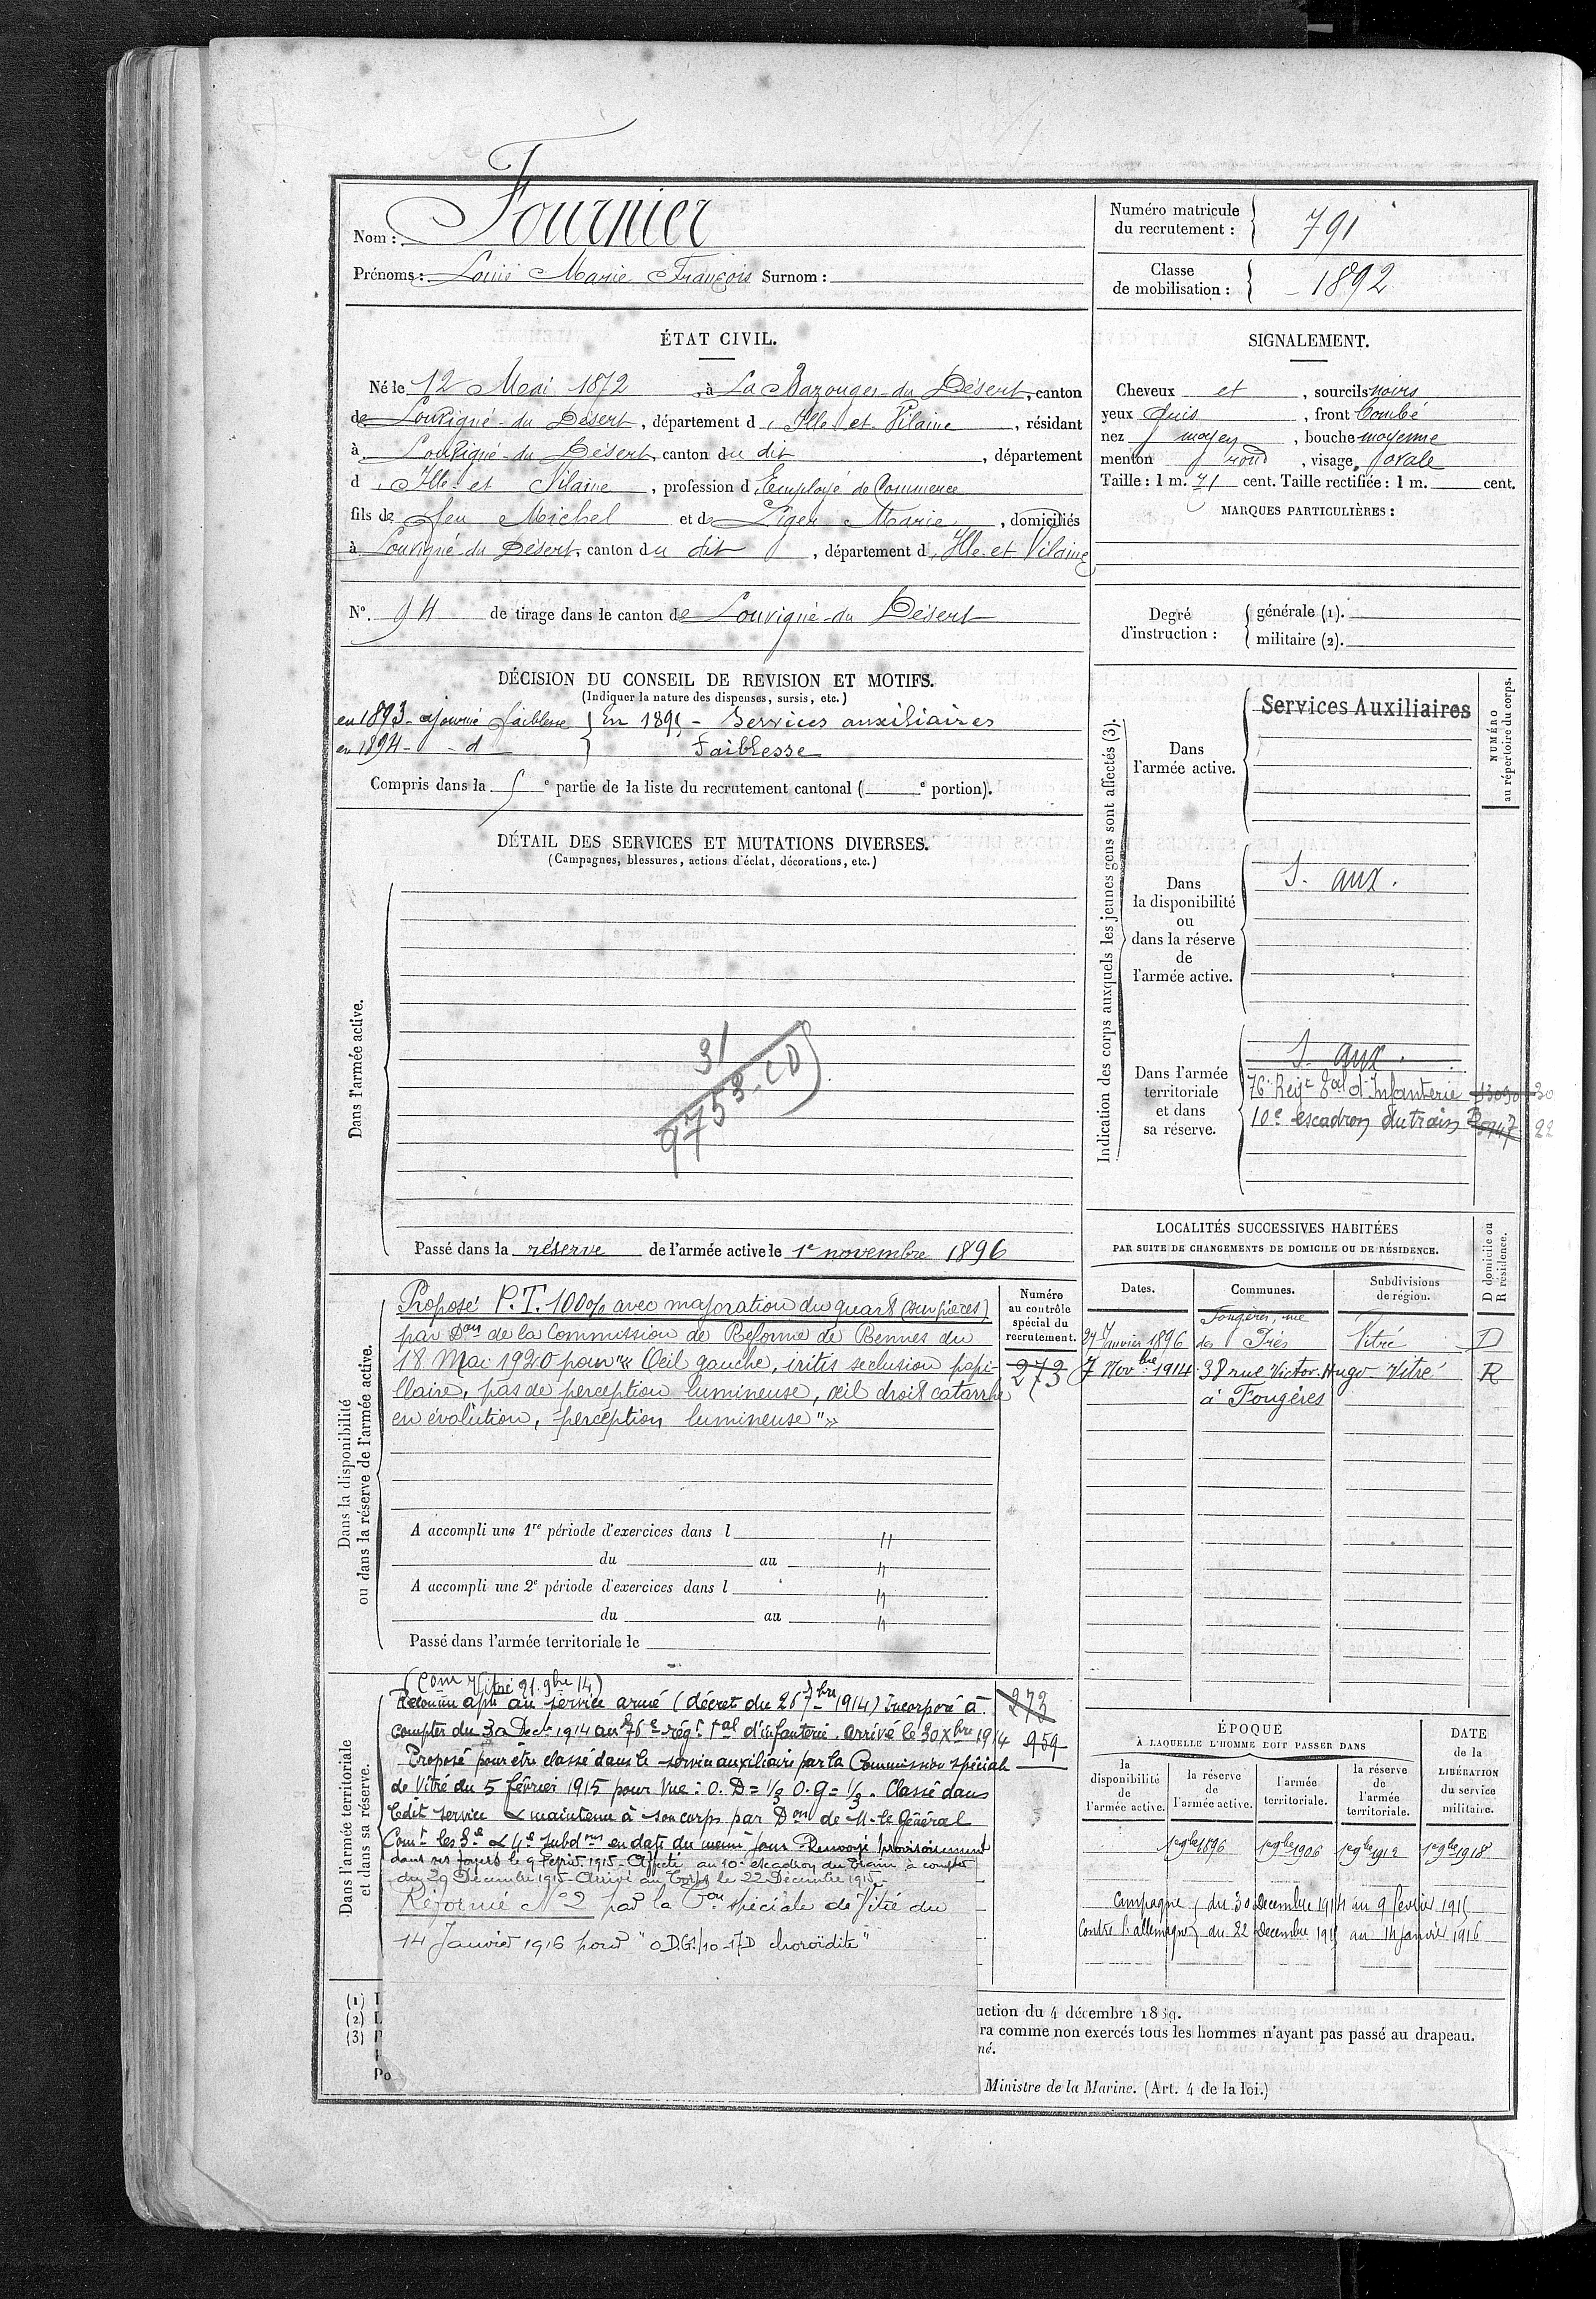 Nom : Fournier
Prénoms : Louis Marie François Surnom :
Numéro matricule
du recrutement : 791
Classe
de mobilisation : 1892
ÉTAT CIVIL.
Né le 12 Mai 1872, à La Bazouges-du Désert, canton
de Louvigné-du Désert, département d'Ille-et-Vilaine, résidant
à Louvigné-du Désert, canton du dit, département
d'Ille-et Vilaine, profession d'Employé de Commerce
fils de feu Michel et de Liger Marie, domiciliés
à Louvigné du Désert, canton du dit, département d'Ille-et Vilaine
N° 94 de tirage dans le canton de Louvigné-du Désert
SIGNALEMENT.
Cheveux et, sourcils noirs
yeux, front bombé
nez moyen, bouche moyenne
menton rond, visage ovale
Taille : 1 m. 71 cent. Taille rectifiée : 1 m. cent.
MARQUES PARTICULIÈRES :
Degré
d'instruction :
générale (1).
militaire (2).
DÉCISION DU CONSEIL DE REVISION ET MOTIFS.
(Indiquer la nature des dispenses, sursis, etc.)
en 1893 - ajourné faiblesse } En 1895 - Services auxiliaires
en 1894 - d° } Faiblesse
Compris dans la 5e partie de la liste du recrutement cantonal ( e portion).
DÉTAIL DES SERVICES ET MUTATIONS DIVERSES.
(Campagnes, blessures, actions d'éclat, décorations, etc.)
Dans l'armée active.
31
9753-CD
Passé dans la réserve de l'armée active le 1er novembre 1896
Indication des corps auxquels les jeunes gens sont affectés (3).
NUMÉRO
au répertoire du corps.
Dans
l'armée active.
Services Auxiliaires
Dans
la disponibilité
ou
dans la réserve
de
l'armée active.
S. aux.
Dans l'armée
territoriale
et dans
sa réserve.
S. aux.
76e Regt Tal d'Infanterie
10e escadron du train
LOCALITÉS SUCCESSIVES HABITÉES
PAR SUITE DE CHANGEMENTS DE DOMICILE OU DE RÉSIDENCE.
D domicile ou
R résidence.
Dates. Communes. Subdivisions
de région.
Fougères, rue
27 Janvier 1896 des Prés Vitré D
7 Novbre 1914 38 rue Victor-Hugo Vitré R
à Fougères
Dans la disponibilité
ou dans la réserve de l'armée active.
Numéro
au contrôle
spécial du
recrutement.
273
Proposé P.T. 100% avec majoration du quart (sur pièces)
par Don de la Commission de Réforme de Rennes du
18 Mai 1920 pour « Oeil gauche, iritis seclusion papi-
llaire, pas de perception lumineuse, œil droit catarrhe
en évolution, perception lumineuse "»
A accompli une 1re période d'exercices dans l "
du au "
A accompli une 2e période d'exercices dans l "
du au "
Passé dans l'armée territoriale le
Dans l'armée territoriale
et dans sa réserve.
(Com Vitré 21 9bre 14)
Reconnu apte au service armé (décret du 26 7bre 1914) Incorporé à
compter du 30 Dec. 1914 au 76e régt tal d'infanterie. Arrivé le 30 Xbre 1914
Proposé pour être classé dans le service auxiliaire par la Commission spéciale
de Vitré du 5 février 1915 pour vue : O. D = 1/3 O. g = 1/3. Classé dans
ledit service & maintenu à son corps par Don de M. le Général
Comt les 3e & 4e subdons en date du même jour Renvoyé provisoirement
dans ses foyers le 9 Février 1915 - Affecté au 10e escadron du train à compter
du 20 Décembre 1915 - Arrivé au Corps le 22 Décembre 1915 -
Réformé N° 2 par la Con spéciale de Vitré du
14 Janvier 1916 pour " O.D.G. 1/10 -17D choroïdite "
272
959
ÉPOQUE
À LAQUELLE L'HOMME DOIT PASSER DANS
DATE
de la
LIBÉRATION
du service
militaire.
la
disponibilité
de
l'armée active.
la réserve
de
l'armée active.
l'armée
territoriale.
la réserve
de
l'armée
territoriale.
1er 9bre 1896 1er 9bre 1906 1er 9bre 1912 1er 9bre 1918
Campagne { du 30 Decembre 1914 au 9 fevrier 1915
Contre l'allemagne } du 22 decembre 1915 au 14 janvier 1916
(1) I
(2) L
(3)
Po
uction du 4 décembre 1889.
ra comme non exercés tous les hommes n'ayant pas passé au drapeau.
né.
Ministre de la Marine. (Art. 4 de la loi.)